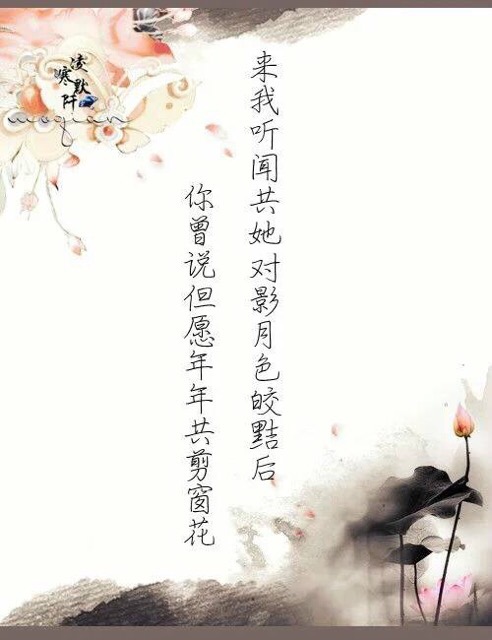 来我听闻共她对影月色皎黠后
你曾说但愿年年共剪窗花
凌寒默阡
moqian